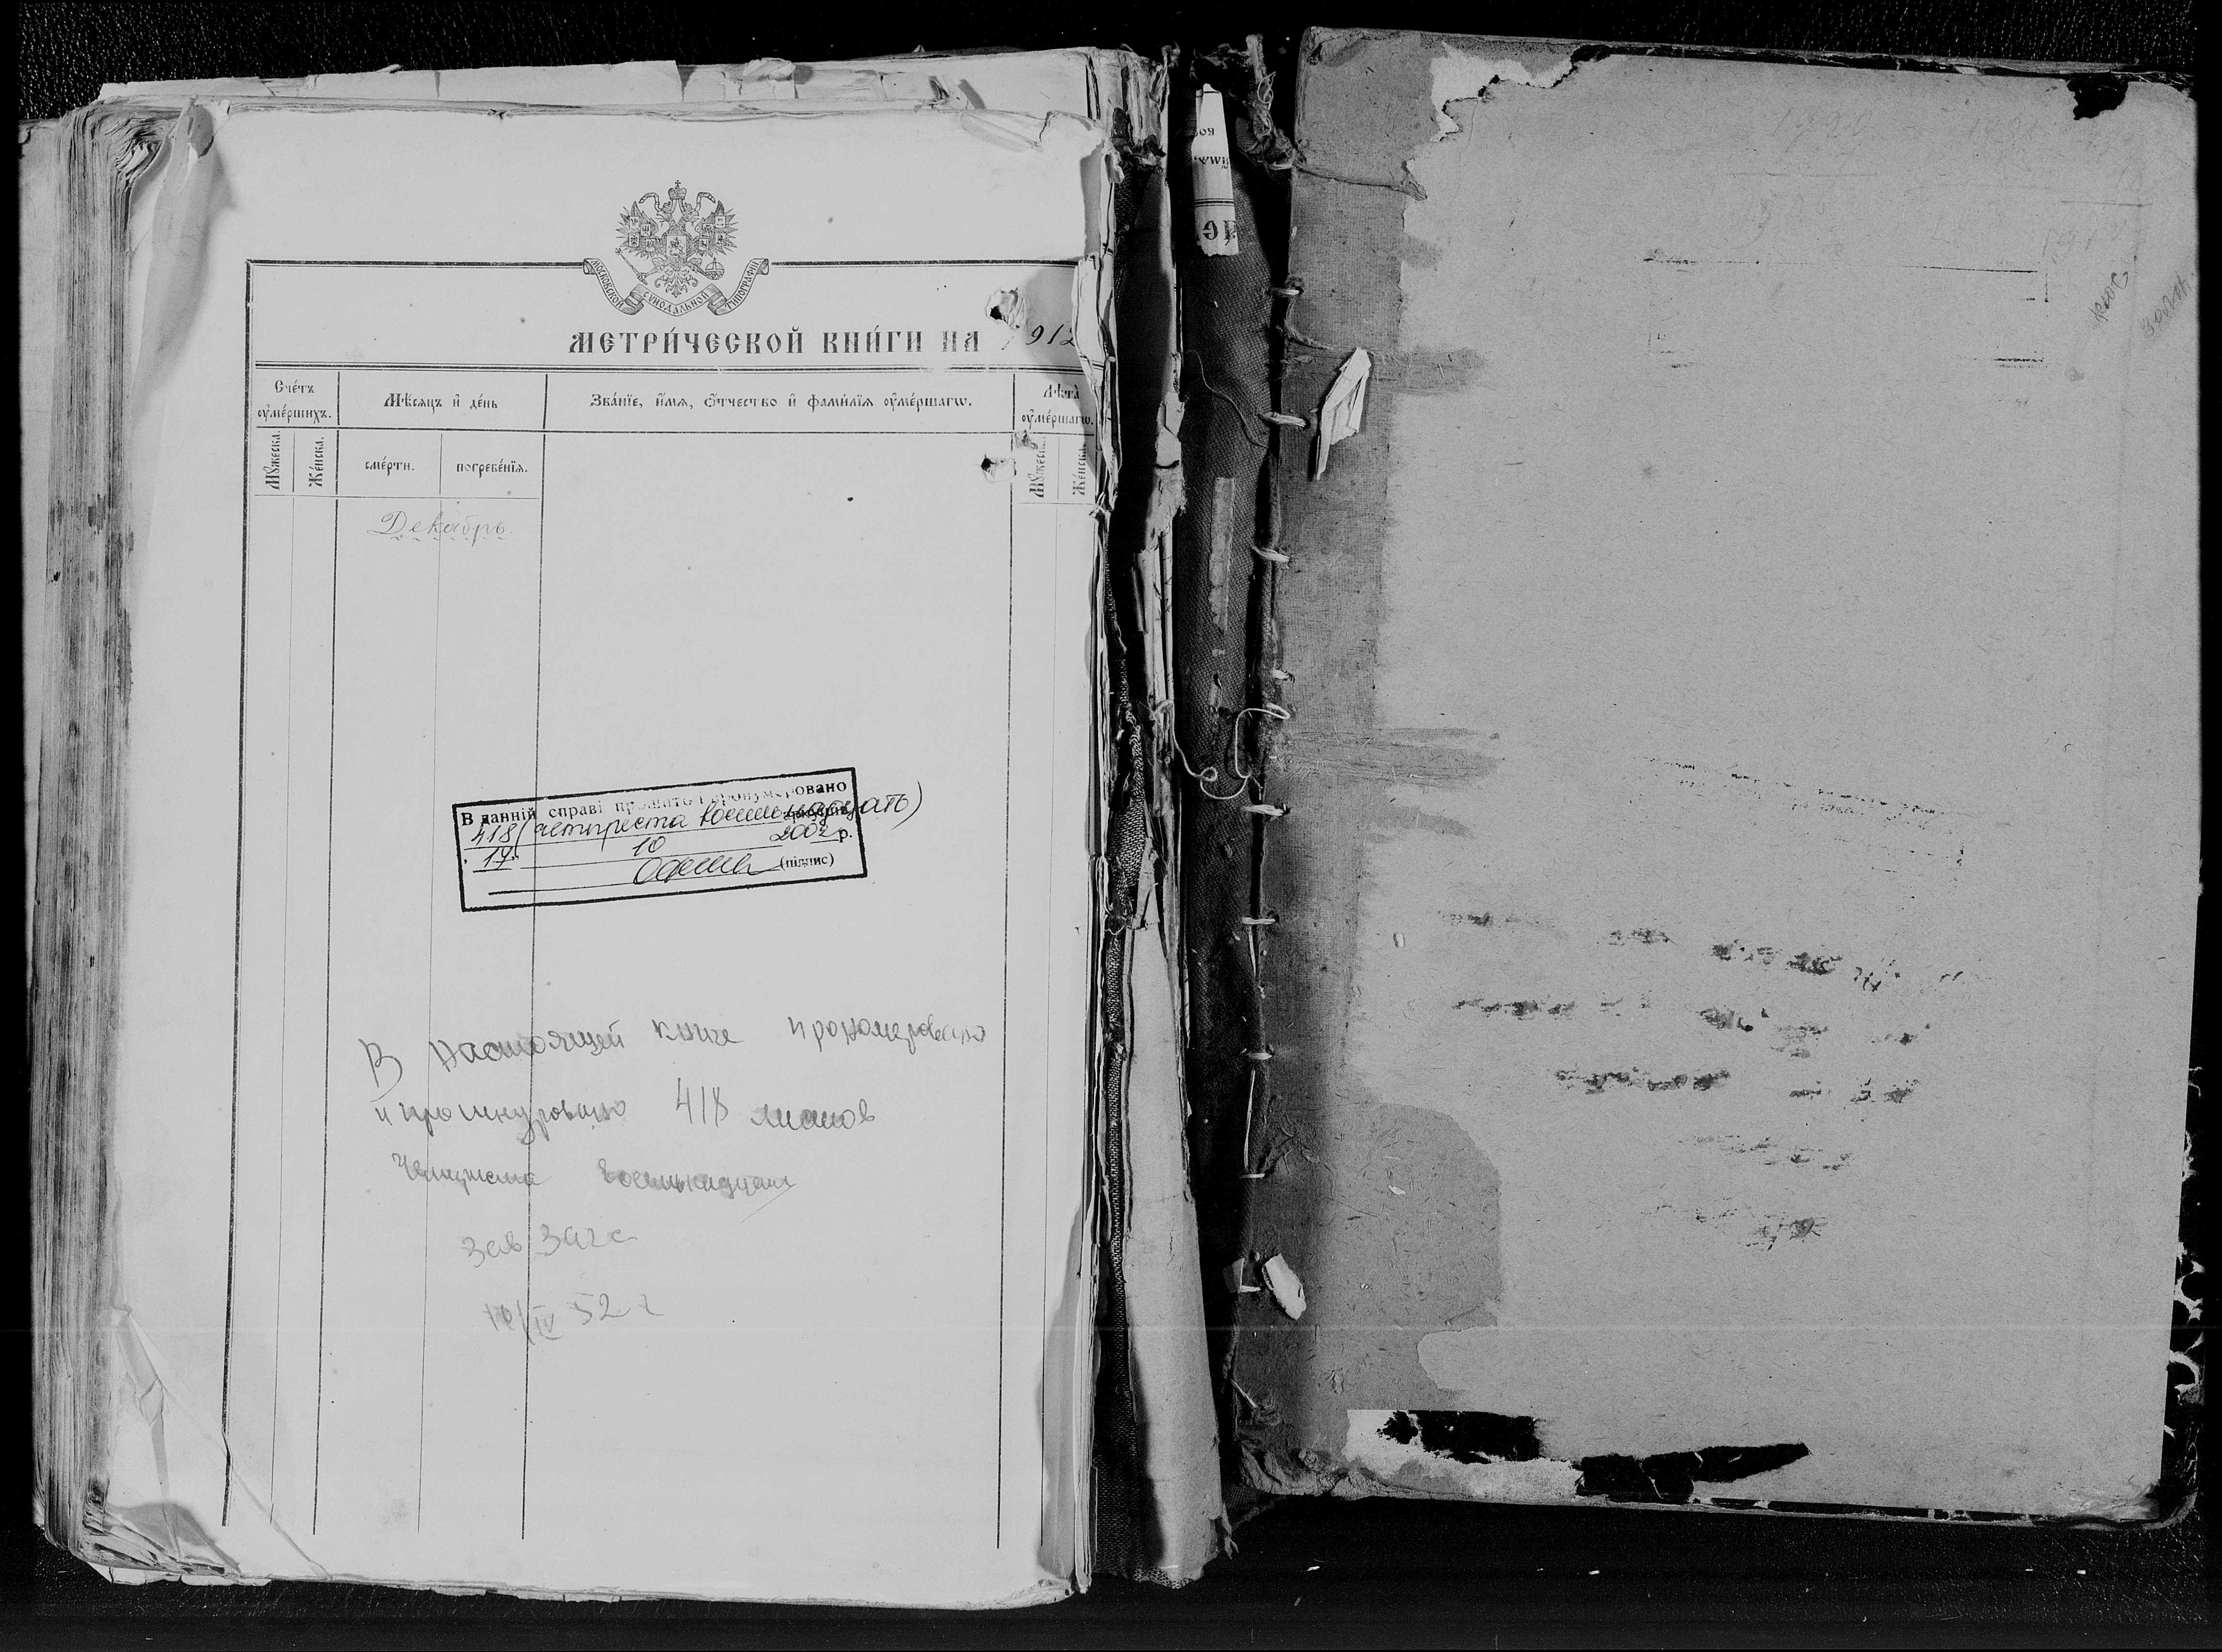 МОСКОВСКОЙ СѴНОДАЛЬНОЙ ТИПОГРАФІИ
МЕТРИ́ЧЕСКОЙ КНИ́ГИ НА 1912
Сче́тъ ᲂу҆ме́ршихъ.
Мѣ́сяцъ и҆ де́нь
Зва́нїе, и҆́мѧ, ѻ҆́тчество и҆ фами́лїѧ ᲂу҆ме́ршагѡ.
Лѣ́та ᲂу҆ме́ршагѡ.
Мꙋ́жеска.
Же́нска.
сме́рти.
погребе́нїѧ.
Мꙋ́жеска.
Же́нска.
Декабрь.
В данній справі прошито і пронумеровано
418 (четиреста восемнадцать) аркушів
17 10 2002 р.
(підпис)
В настоящей книге прономеровано
и прошнуровано 418 листов
Четыреста восемнадцать
Зав Загс
IV 52 г